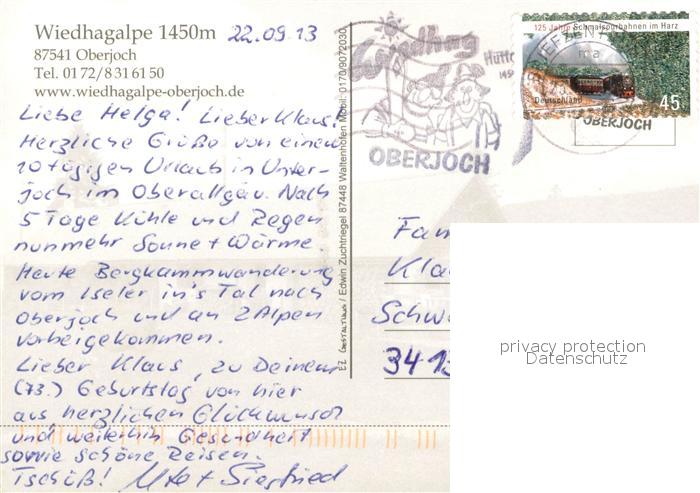 Wiedhagalpe 1450m
22.09.13
87541 Oberjoch
Tel. 0172/8316150
www.wiedhagalpe-oberjoch.de
Liebe Helga! Lieber Klaus!
Herzliche Grüße von einem
10 tägigen Urlaub in Unter-
joch im Oberallgäu. Nach
5 Tage Kühle und Regen
nunmehr Sonne + Wärme.
Heute Bergkammwanderung
vom Iseler in's Tal nach
Oberjoch und an 2 Alpen
vorbeigekommen.
Lieber Klaus, zu Deinem
(73.) Geburtstag von hier
aus herzlichen Glückwunsch
und weiterhin Gesundheit
sowie schöne Reisen.
Tschüß! Uta + Siegfried
EZ GESTALTUNG / Edwin Zuchtriegel 87448 Waltenhofen Mobil: 0170/9072030
Wiedhag
Hütte
OBERJOCH
125 Jahre Schmalspurbahnen im Harz
Deutschland
45
OBERJOCH
Fam
Kla
Schw
3413
privacy protection
Datenschutz